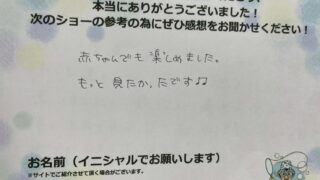 本当にありがとうございました！
次のショーの参考の為にぜひ感想をお聞かせください！
赤ちゃんでも楽しめました。
もっと見たかったです♫
お名前（イニシャルでお願いします）
※サイトでご紹介させて頂く場合がございます。